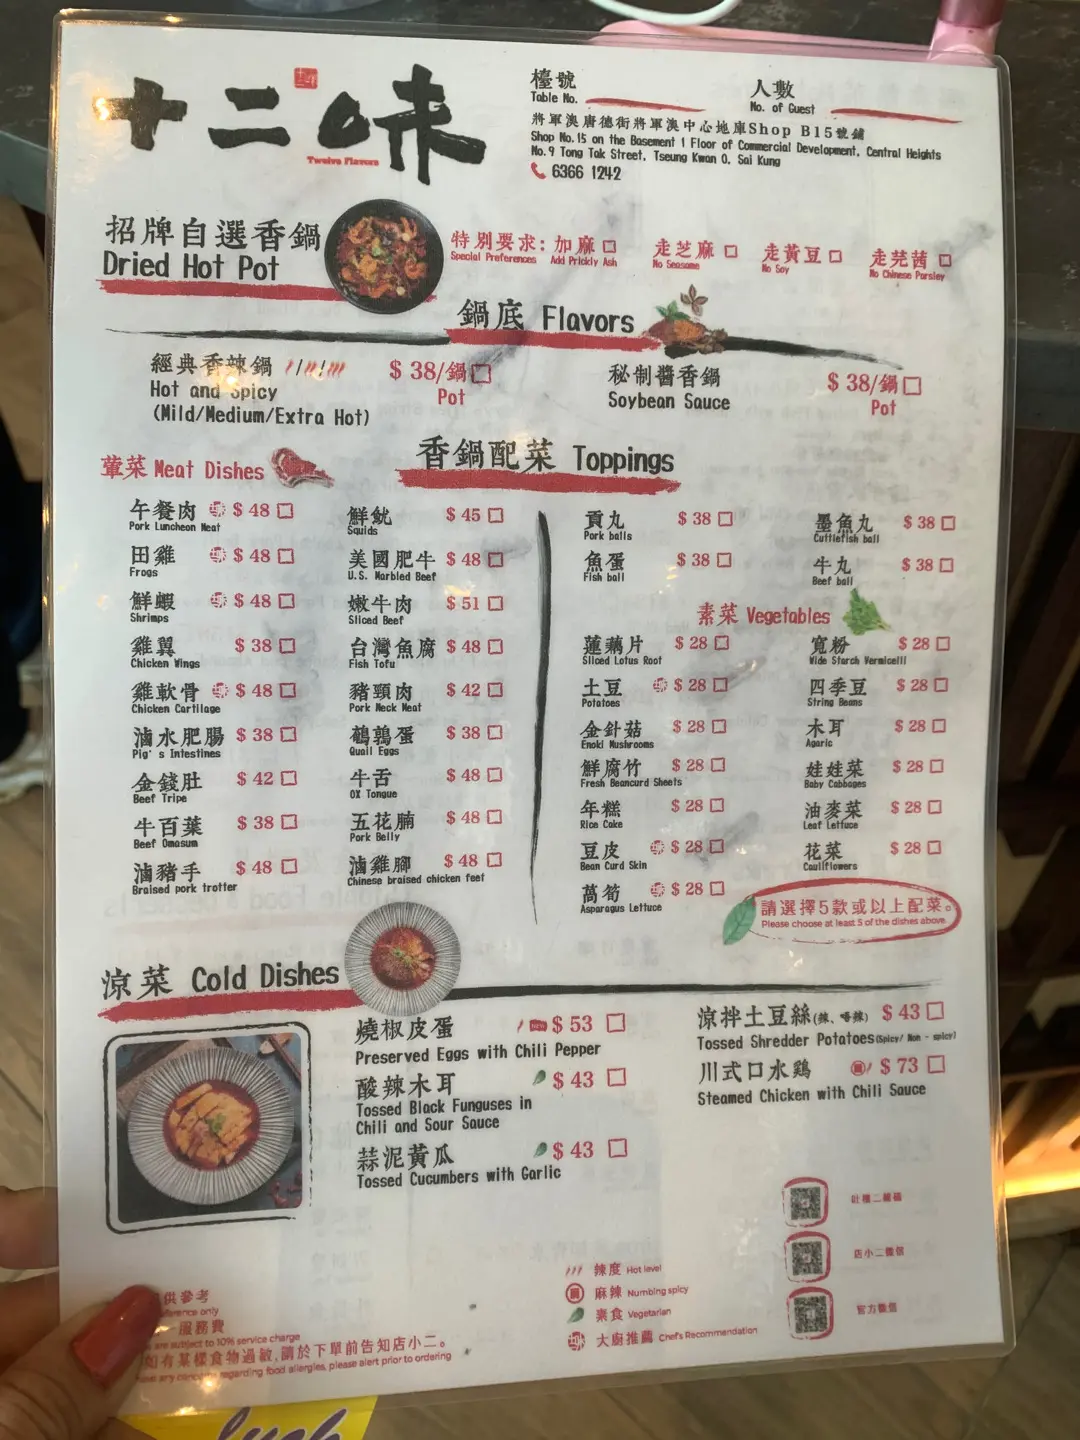 十二味
Twelve Flavors
檯號
Table No.
人數
No. of Guest
將軍澳唐德街將軍澳中心地庫Shop B15號鋪
Shop No.15 on the Basement 1 Floor of Commercial Development, Central Heights
No.9 Tong Tak Street, Tseung Kwan O, Sai Kung
6366 1242
招牌自選香鍋
Dried Hot Pot
特別要求: 加麻
Special Preferences Add Prickly Ash
走芝麻
No Seasame
走黃豆
No Soy
走芫茜
No Chinese Parsley
鍋底 Flavors
經典香辣鍋 $ 38/鍋
Hot and Spicy Pot
(Mild/Medium/Extra Hot)
秘制醬香鍋 $ 38/鍋
Soybean Sauce Pot
香鍋配菜 Toppings
葷菜 Meat Dishes
午餐肉 $ 48
Pork Luncheon Meat
田雞 $ 48
Frogs
鮮蝦 $ 48
Shrimps
雞翼 $ 38
Chicken Wings
雞軟骨 $ 48
Chicken Cartilage
滷水肥腸 $ 38
Pig's Intestines
金錢肚 $ 42
Beef Tripe
牛百葉 $ 38
Beef Omasum
滷豬手 $ 48
Braised pork trotter
鮮魷 $ 45
Squids
美國肥牛 $ 48
U.S. Marbled Beef
嫩牛肉 $ 51
Sliced Beef
台灣魚腐 $ 48
Fish Tofu
豬頸肉 $ 42
Pork Neck Meat
鵪鶉蛋 $ 38
Quail Eggs
牛舌 $ 48
OX Tongue
五花腩 $ 48
Pork Belly
滷雞腳 $ 48
Chinese braised chicken feet
貢丸 $ 38
Pork balls
魚蛋 $ 38
Fish ball
墨魚丸 $ 38
Cuttlefish ball
牛丸 $ 38
Beef ball
素菜 Vegetables
蓮藕片 $ 28
Sliced Lotus Root
土豆 $ 28
Potatoes
金針菇 $ 28
Enoki Mushrooms
鮮腐竹 $ 28
Fresh Beancurd Sheets
年糕 $ 28
Rice Cake
豆皮 $ 28
Bean Curd Skin
萵筍 $ 28
Asparagus Lettuce
寬粉 $ 28
Wide Starch Vermicelli
四季豆 $ 28
String Beans
木耳 $ 28
Agaric
娃娃菜 $ 28
Baby Cabbages
油麥菜 $ 28
Leaf Lettuce
花菜 $ 28
Cauliflowers
請選擇5款或以上配菜。
Please choose at least 5 of the dishes above.
涼菜 Cold Dishes
燒椒皮蛋 $ 53
Preserved Eggs with Chili Pepper
酸辣木耳 $ 43
Tossed Black Funguses in
Chili and Sour Sauce
蒜泥黃瓜 $ 43
Tossed Cucumbers with Garlic
涼拌土豆絲(辣、唔辣) $ 43
Tossed Shredder Potatoes(Spicy/ Non - spicy)
川式口水鷄 $ 73
Steamed Chicken with Chili Sauce
店小二微信
官方微信
辣度 Hot level
麻辣 Numbing spicy
素食 Vegetarian
大廚推薦 Chef's Recommendation
供參考
only
服務費
are subject to 10% service charge
如有某樣食物過敏,請於下單前告知店小二。
regarding food allergies, please alert prior to ordering